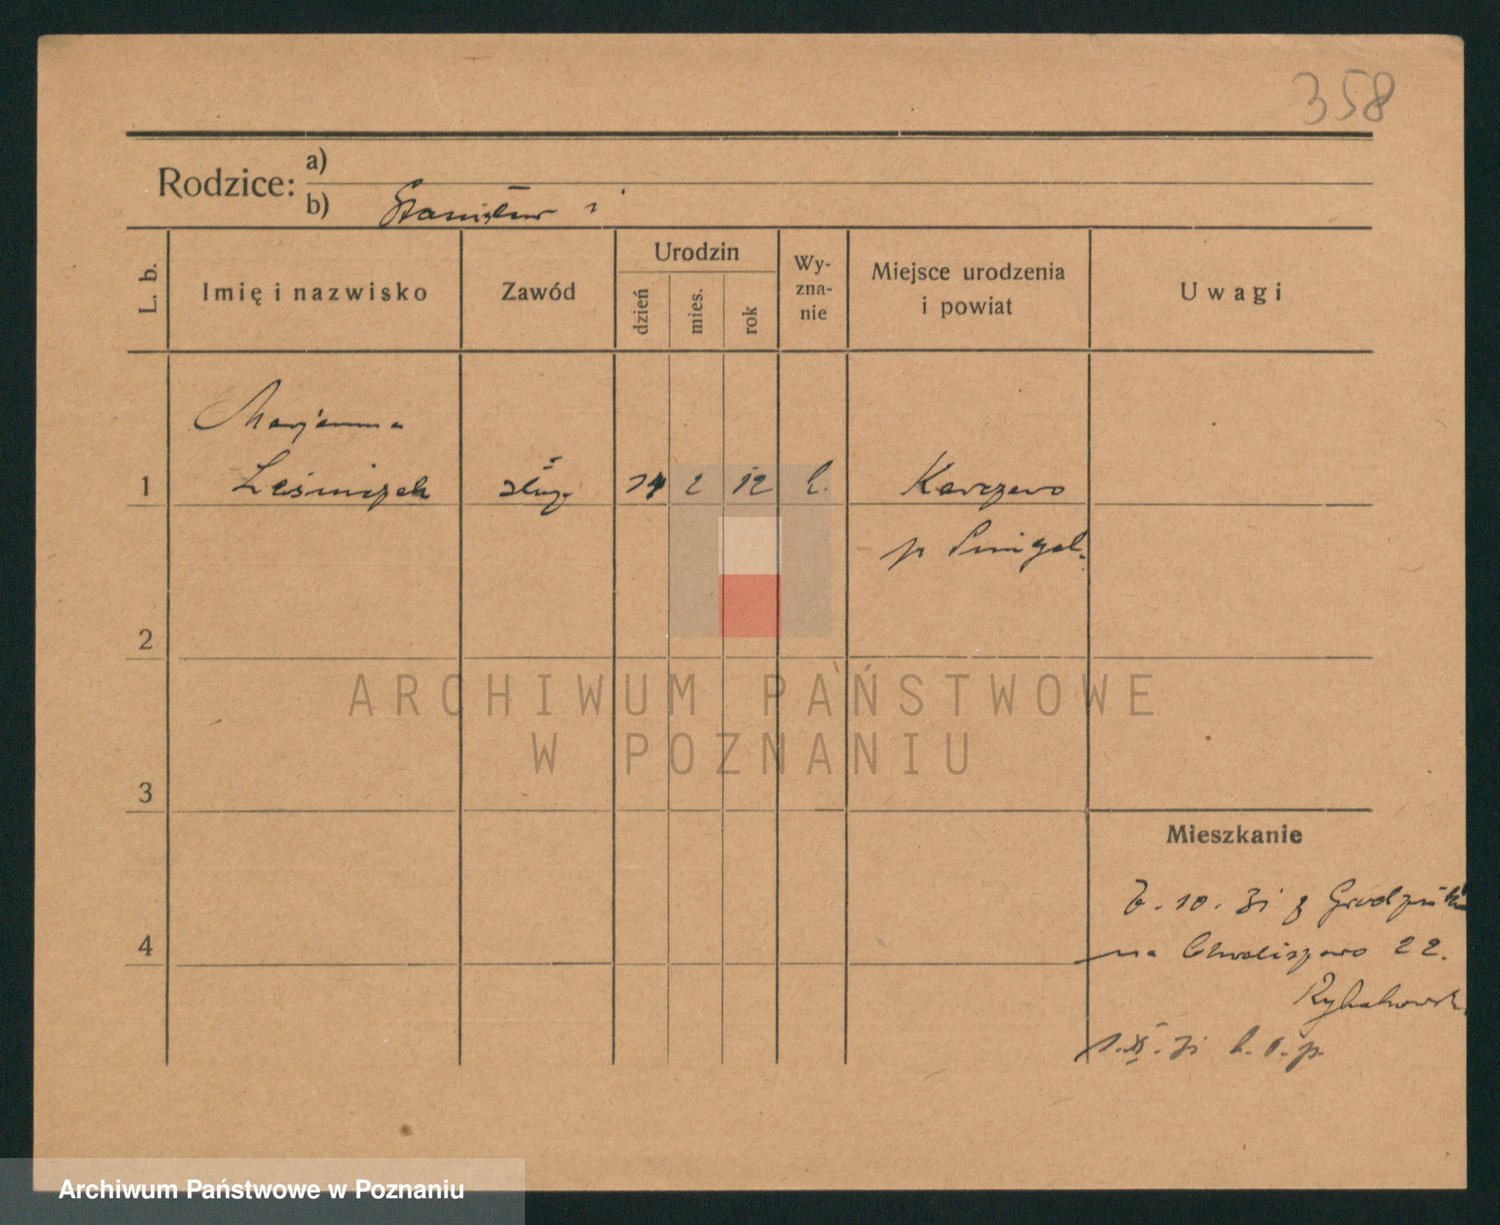 358
Rodzice: a)
b) Stanisław i
L. b.
Imię i nazwisko
Zawód
Urodzin
dzień
mies.
rok
Wy-
zna-
nie
Miejsce urodzenia
i powiat
Uwagi
Marjanna
1 Leśniczak służ. 14 2 12 k. Karczewo
p Śmigiel.
2
ARCHIWUM PAŃSTWOWE
W POZNANIU
3
Mieszkanie
10. 31 z Grodziska
4
na Chwaliszewo 22.
1.XI.31
Archiwum Państwowe w Poznaniu